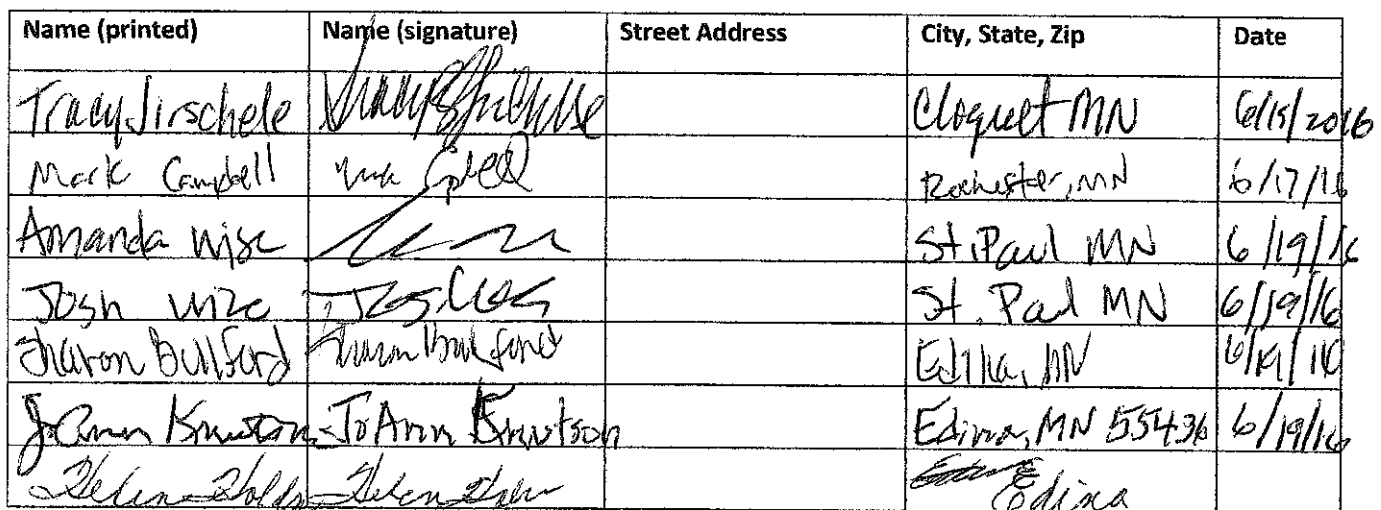 Name (printed) Name (signature) Street Address City, State, Zip Date
Tracy Jirschele Cloquet MN 6/15/2016
Mark Campbell Rochester, MN 6/17/16
Amanda Wise St. Paul MN 6/19/16
Josh Wise St. Paul MN 6/19/16
Sharon Bullford Edina, MN 6/19/16
JoAnn Knutson JoAnn Knutson Edina, MN 55436 6/19/16
Helen Helen Edina